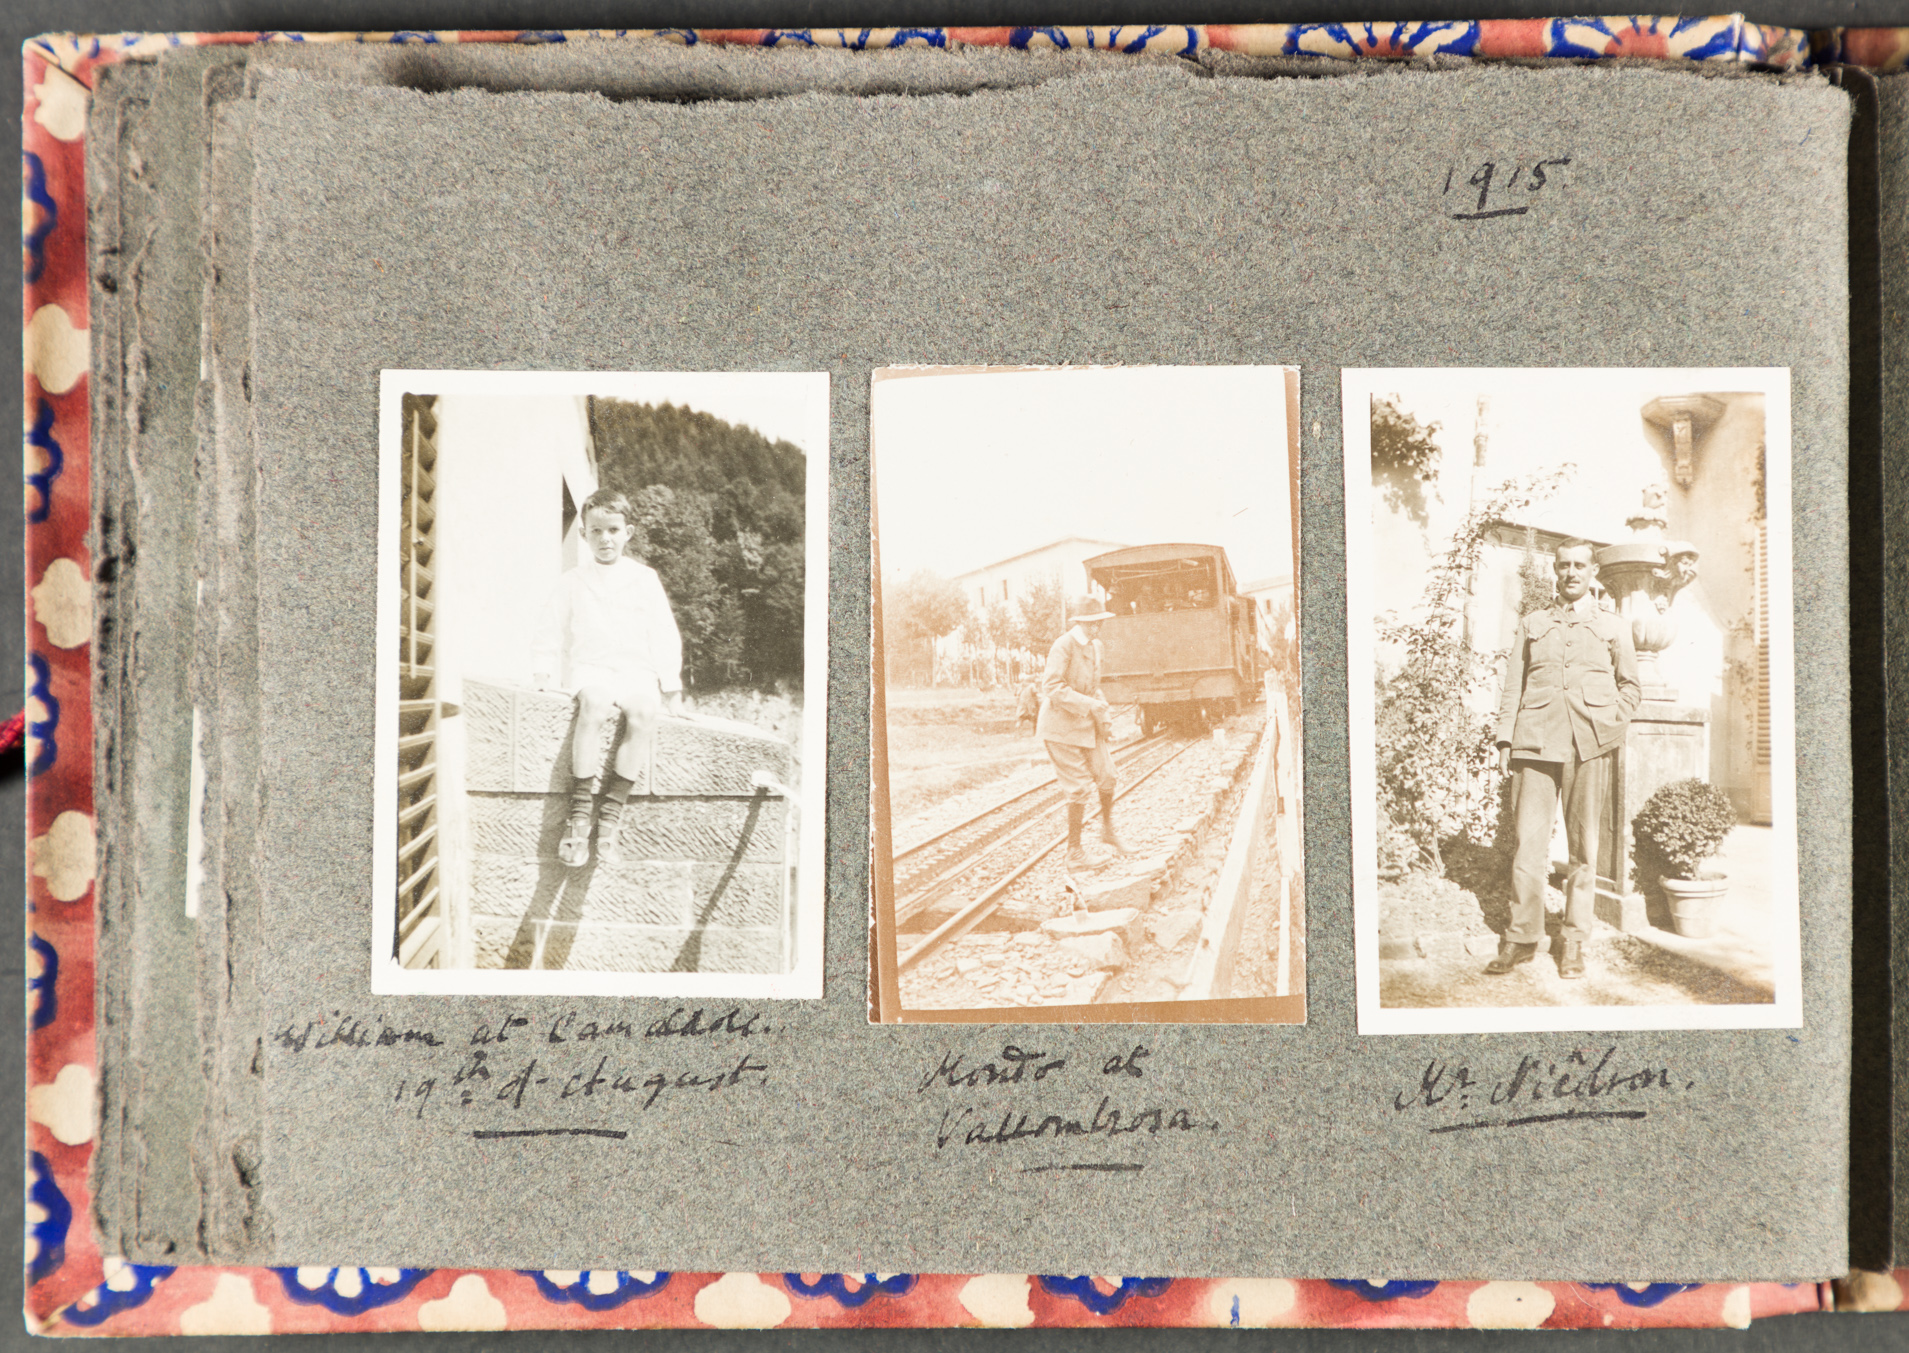 1915.
William at Camaldoli.
19th of August.
Mondo at
Vallombrosa.
Mr.